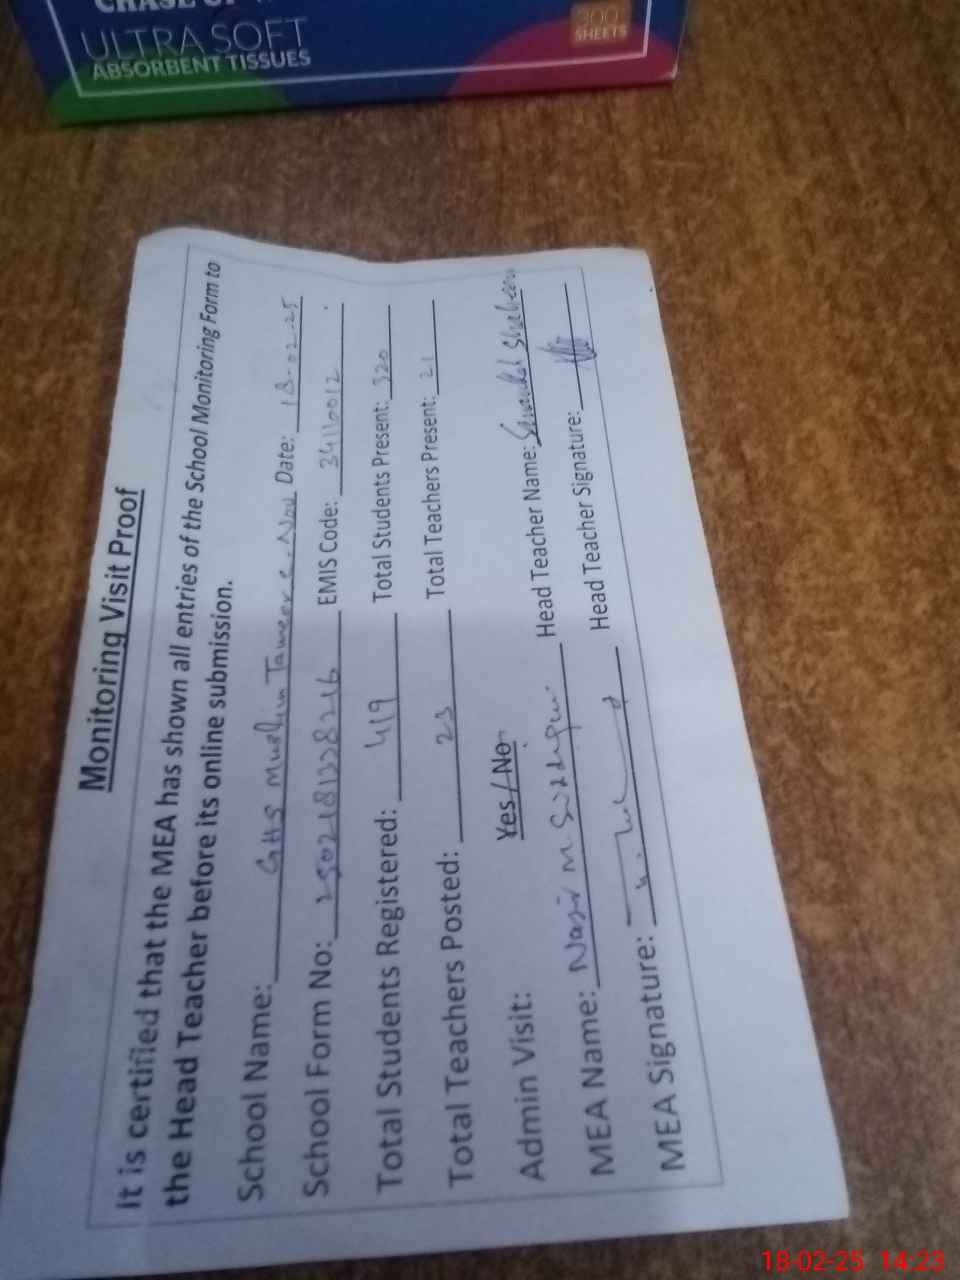 ULTRA SOFT
ABSORBENT TISSUES
300
SHEETS
Monitoring Visit Proof
It is certified that the MEA has shown all entries of the School Monitoring Form to
the Head Teacher before its online submission.
School Name: GHS Muslim Tameer e Nau Date: 18-02-25
School Form No: EMIS Code: 34116012
Total Students Registered: 419 Total Students Present: 320
Total Teachers Posted: 23 Total Teachers Present: 21
Admin Visit: Yes / No
MEA Name: Nasir M. Head Teacher Name: Shaheen
MEA Signature: Head Teacher Signature:
18-02-25 14:23